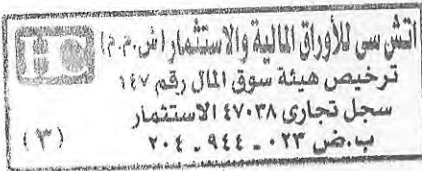 اتش سى للأوراق المالية والاستثمار (ش.م.م)
ترخيص هيئة سوق المال رقم ١٤٧
سجل تجارى ٤٧٠٣٨ الاستثمار
ب.ض ٠٢٣ - ٩٤٤ - ٢٠٤
(٣)